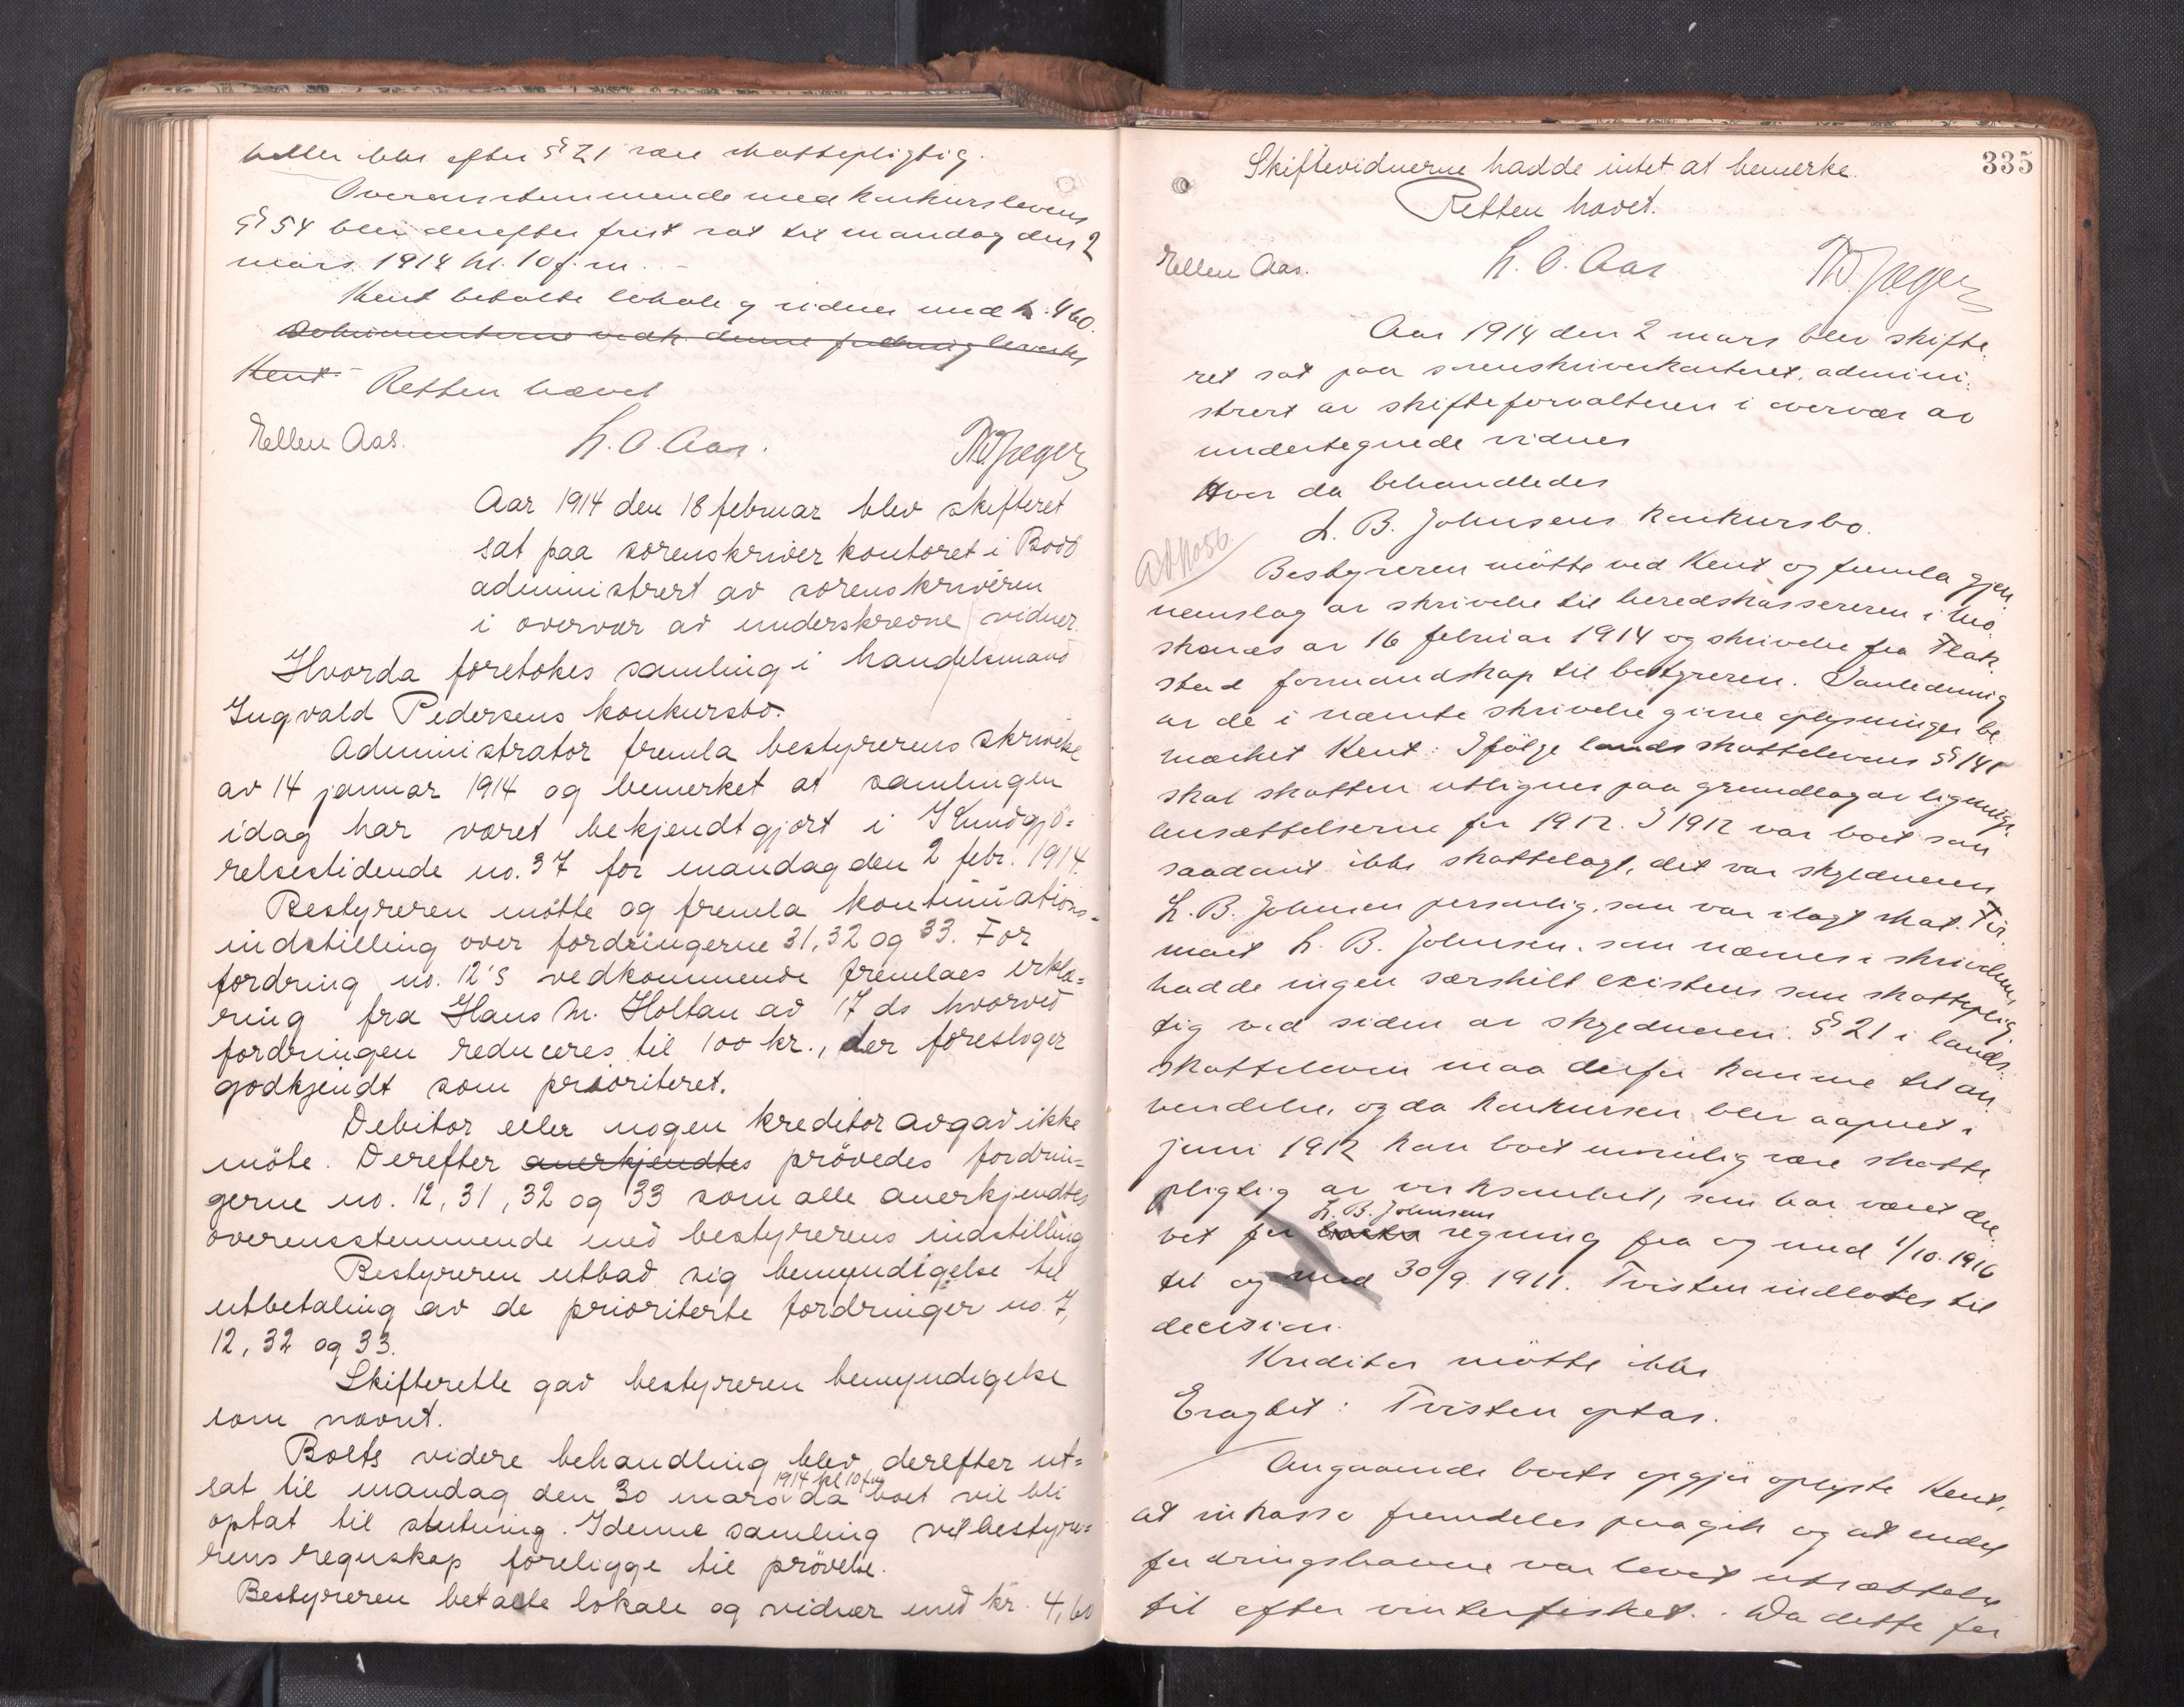 heller ikke efter § 21 være skattepligtig.
Overensstemmende med konkurslovens
§ 54 blev derefter frist sat til mandag den 2
mars 1914 kl. 10 f. m. -
Kent betalte lokale og vidner med kr. 4 60.
Dokumenterne vedk. denne fordring leveres
Kent. Retten hævet
Ellen Aas. L. O. Aas. Th. Jæger
Aar 1914 den 18 februar blev skifteret
sat paa sorenskriver kontoret i Bodö
administrert av sorenskriveren
i overvær av underskrevne vidner.
Hvorda foretokes samling i handelsmand
Ingvald Pedersens konkursbo.
Administrator fremla bestyrerens skrivelse
av 14 januar 1914 og bemerket at samlingen
idag har været bekjendtgjort i Kundgjö=
relsestidende no. 37 for mandag den 2 febr. 1914.
Bestyreren mötte og fremla kontinuations=
indstilling over fordringerne 31, 32 og 33. For
fordring no. 12's vedkommende fremlaes erklæ=
ring fra Hans M. Holtan av 17 ds hvorved
fordringen reduceres til 100 kr., der foreslaaes
godkjendt som prioriteret.
Debitor eller nogen kreditor avgav ikke
möte. Derefter anerkjendtes prövedes fordrin=
gerne no. 12, 31, 32 og 33 som alle anerkjendtes
overensstemmende med bestyrerens indstilling
Bestyreren utbad sig bemyndigelse til
utbetaling av de prioriterte fordringer no. 7,
12, 32 og 33.
Skifterette gav bestyreren bemyndigelse
som nævnt.
Boets videre behandling blev derefter ut=
1914 kl 10 fm
sat til mandag den 30 mars da boet vil bli
optat til slutning. I denne samling vil bestyre=
rens regnskap foreligge til prövelse.
Bestyreren betalte lokale og vidner med kr. 4,60
335
Skiftevidnerne hadde intet at bemerke.
Retten hævet.
Ellen Aas. L. O. Aas Th. Jæger
Aar 1914 den 2 mars blev skifte
ret sat paa sorenskriverkontoret, admini
strert av skifteforvalteren i overvær av
undertegnede vidner
Hvor da behandledes
L. B. Johnsens konkursbo.
Bestyreren mötte ved Kent og fremla gjen
nemslag av skrivelse til herredskassereren i Mo
skenes av 16 februar 1914 og skrivelse fra Flak
stad formandskap til bestyreren. I anledning
av de i nævnte skrivelse givne oplysninger be
mærket Kent: Ifölge landsskattelovens § 141
skal skatten utlignes paa grundlag av lignings
ansættelserne for 1912. I 1912 var boet som
saadant ikke skattelagt, det var skyldneren
L. B. Johnsen personlig, som var ilagt skat. Fir
maet L. B. Johnsen, som nævnes i skrivelsen,
hadde ingen særskilt existens som skatteplig
tig ved siden av skyldneren. § 21 i lands
skatteloven maa derfor komme til an
vendelse, og da konkursen blev aapnet i
juni 1912 kan boet umulig være skatte
pligtig av virksomhet, som har været dre
L. B. Johnsens
vet for boets regning fra og med 1/10. 1910
til og med 30/9. 1911. Tvisten indlates til
decision.
Kreditor mötte ikke
Eragtet: Tvisten optas.
Angaaende boets opgjör oplyste Kent,
at inkasso fremdeles paagik og at endel
fordringshavere var lovet utsættelse
til efter vinterfisket. Da dette for